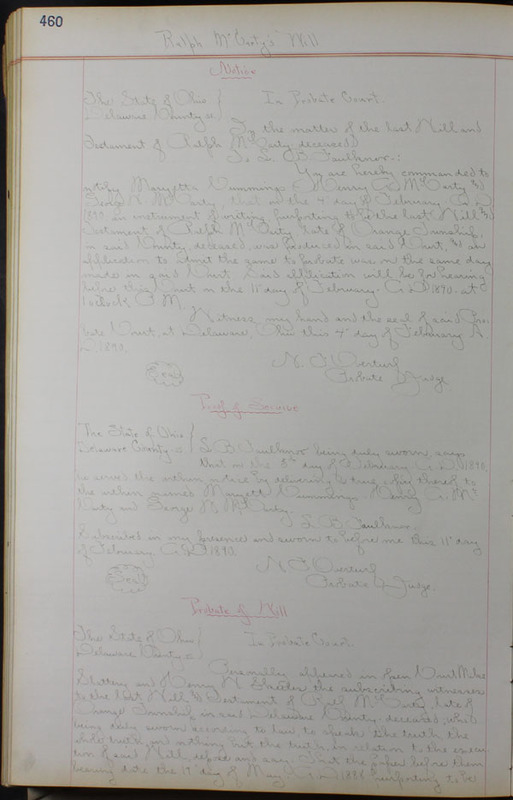 460
Ralph McCarty's Will
Notice
The State of Ohio } In Probate Court.
Delaware County ss }
In the matter of the Last Will and
Testament of Ralph McCarty deceased
To L. B. Faulkner.:
You are hereby commanded to
notify Maryett Cummings Henry C. McCarty &
George W. McCarty, that on the 4" day of February A. D.
1890 an instrument of writing, purporting to be the last Will &
Testament of Ralph McCarty late of Orange Township,
in said County, deceased, was produced in said Court, & an
application to admit the same to probate was on the same day
made in said Court. Said application will be for hearing
before this Court on the 11" day of February A. D. 1890. at
1 o'clock P. M.
Witness my hand and the seal of said Pro-
bate Court, at Delaware, Ohio this 4" day of February A
D. 1890.
Seal N. F. Overturf
Probate Judge
Proof of Service
The State of Ohio }
Delaware County ss } L. B. Faulkner being duly sworn, says
that on the day of February A. D. 1890,
he served the within notice by delivering a true copy thereof to
the within named Maryett Cummings Henry C. Mc
Carty and George W. McCarty.
L. B. Faulkner.
Subscribed in my presence and sworn to before me this 11" day
of February A. D. 1890.
Seal N. F. Overturf
Probate Judge.
Probate of Will
The State of Ohio } In Probate Court.
Delaware County ss }
Personally appeared in open Court
Slattery and Henry the subscribing witnesses
to the last Will & Testament of Ralph McCarty, late of
Orange Township in said Delaware County deceased, who
being duly sworn according to law, to speak the truth the
whole truth, and nothing but the truth, in relation to the execu-
tion of said Will, depose and say: That the paper before them
bearing date the 17" day of May A. D. 1888 purporting to be